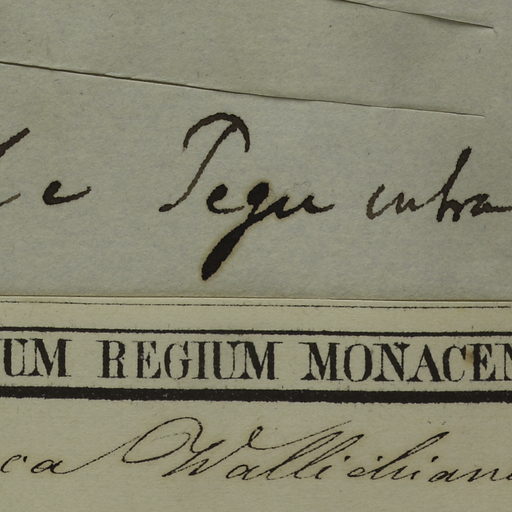 e Pegu intra
UM REGIUM MONACEN
ca Wallichian